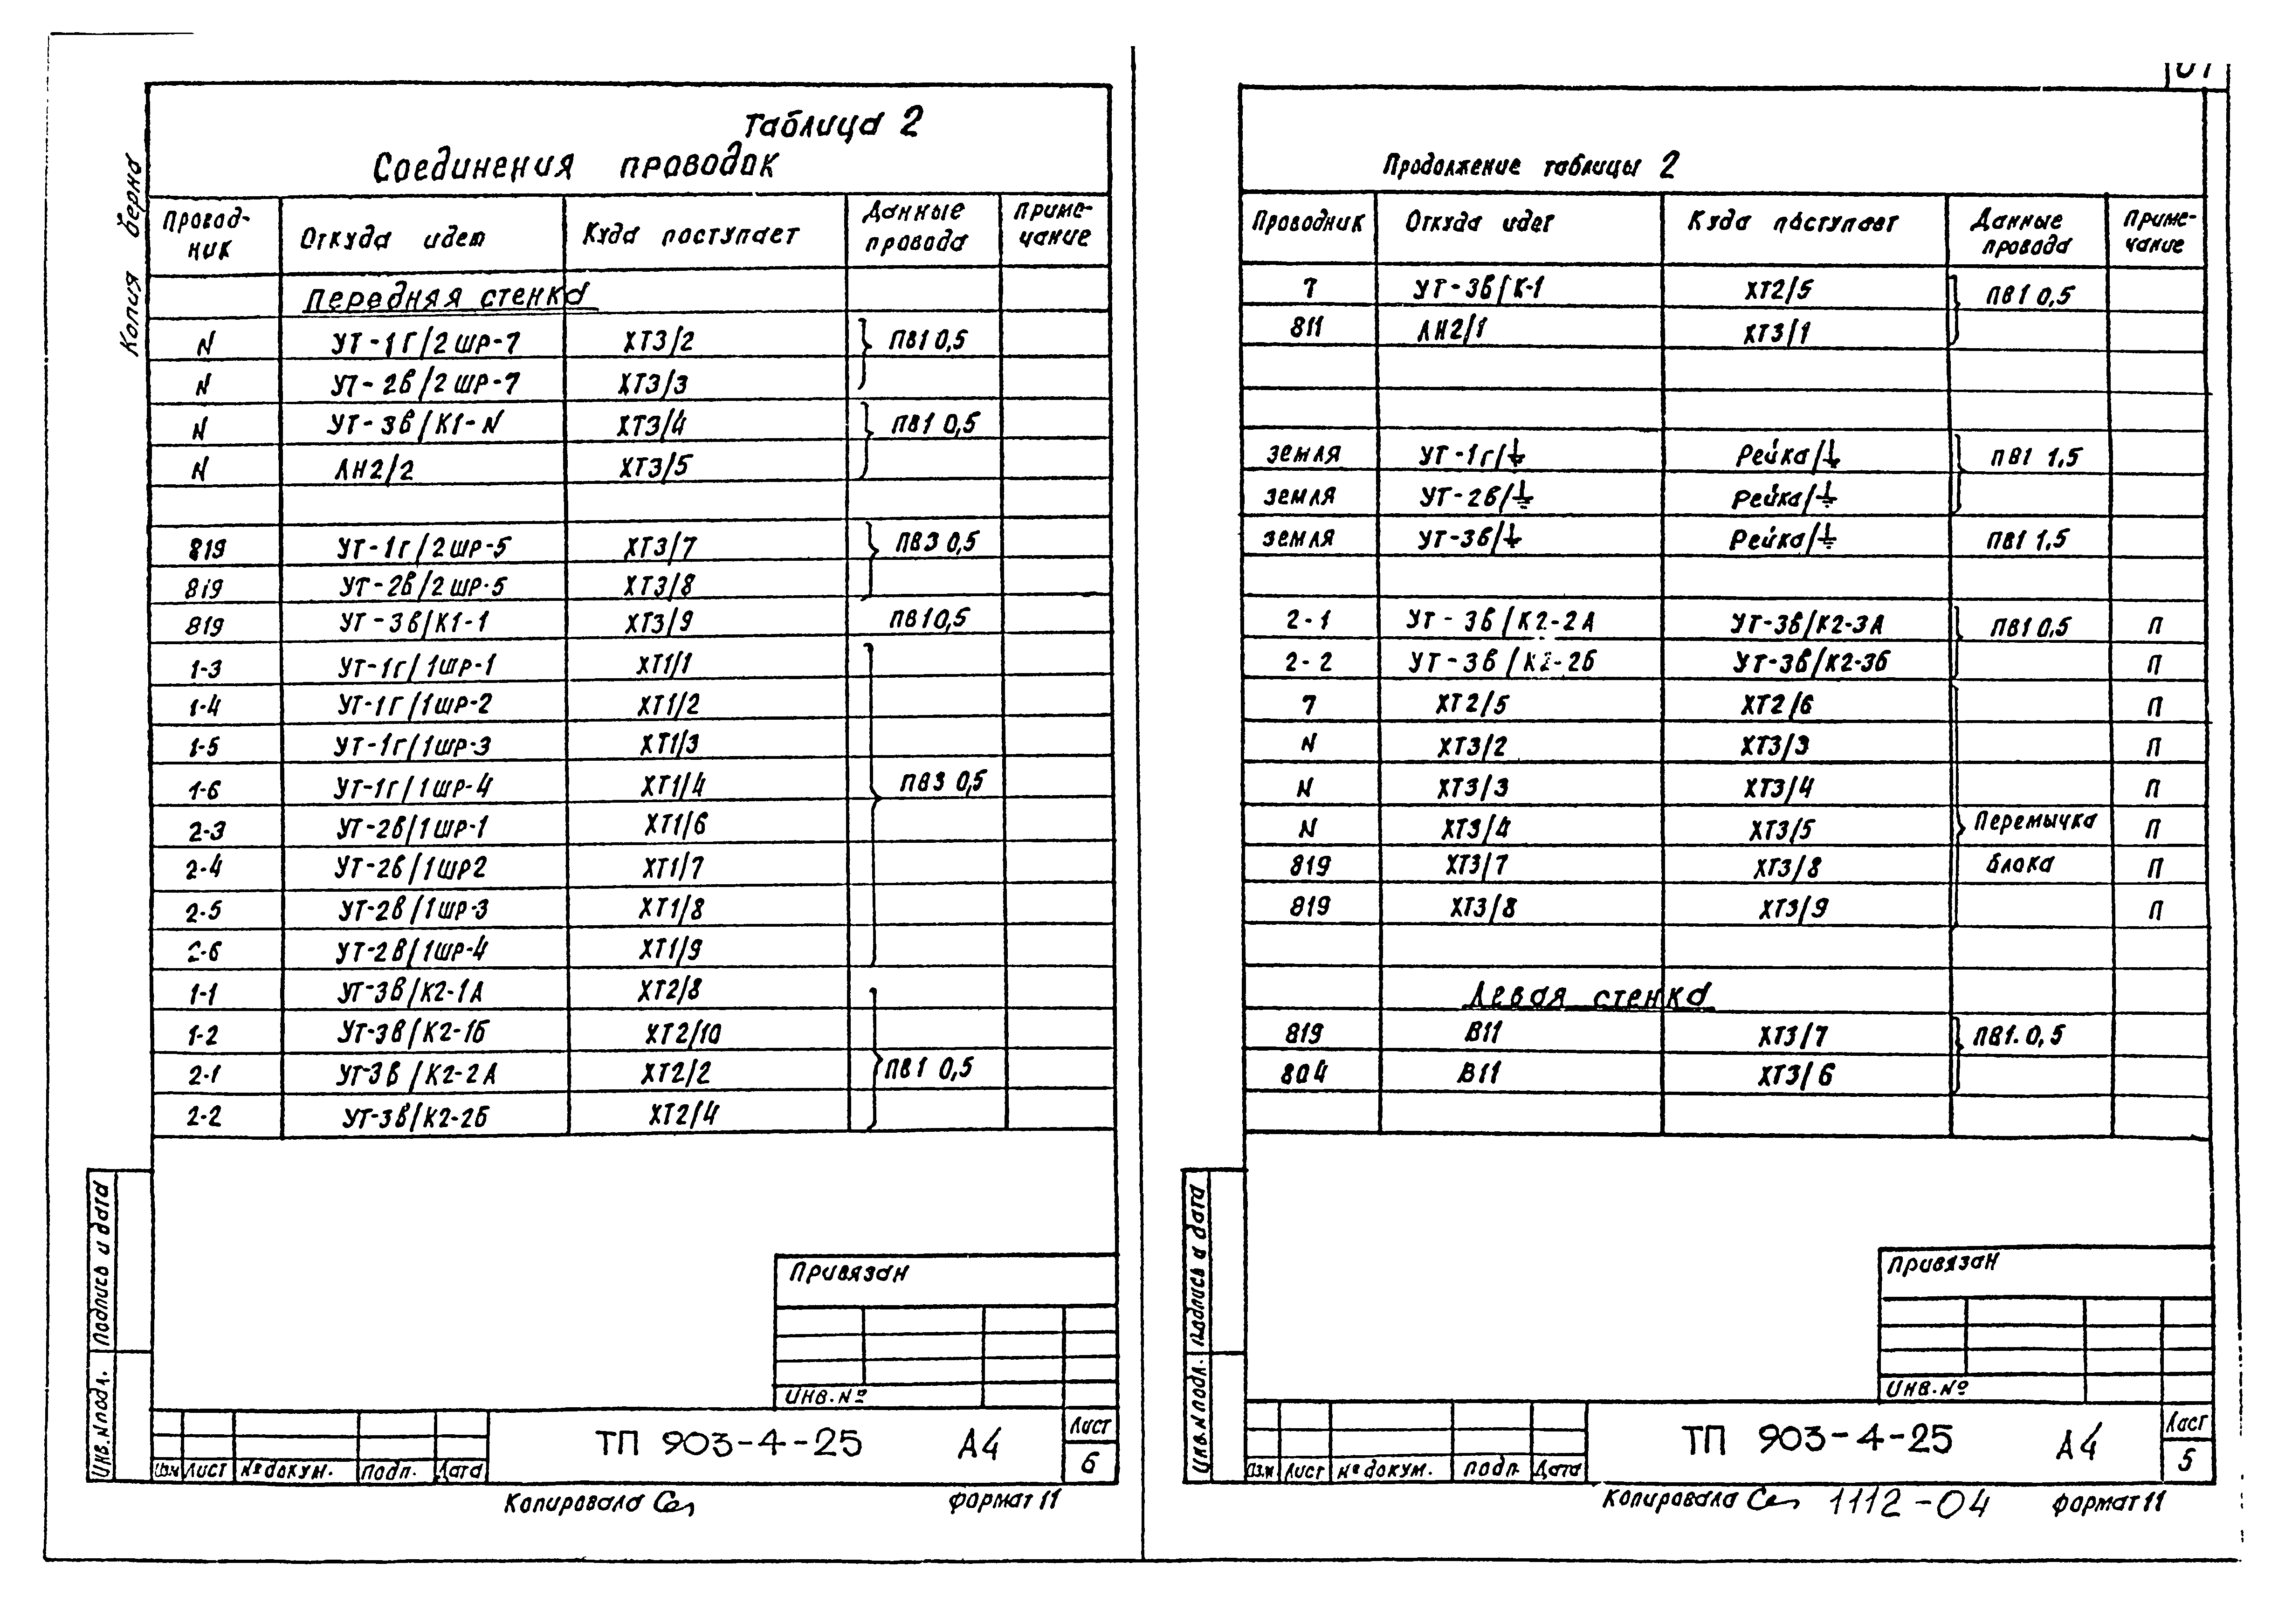 Копия верна
Таблица 2
Соединения проводок
Провод-ник | Откуда идет | Куда поступает | Данные провода | Приме-чание
Передняя стенка
N | УТ-1Г/2ШР-7 | ХТ3/2 | ПВ1 0,5
N | УТ-2В/2ШР-7 | ХТ3/3
N | УТ-3В/К1-N | ХТ3/4 | ПВ1 0,5
N | ЛН2/2 | ХТ3/5
819 | УТ-1г/2ШР-5 | ХТ3/7 | ПВ3 0,5
819 | УТ-2В/2ШР-5 | ХТ3/8
819 | УТ-3В/К1-1 | ХТ3/9 | ПВ1 0,5
1-3 | УТ-1г/1ШР-1 | ХТ1/1
1-4 | УТ-1Г/1ШР-2 | ХТ1/2
1-5 | УТ-1г/1ШР-3 | ХТ1/3
1-6 | УТ-1г/1ШР-4 | ХТ1/4 | ПВ3 0,5
2-3 | УТ-2В/1ШР-1 | ХТ1/6
2-4 | УТ-2В/1ШР2 | ХТ1/7
2-5 | УТ-2В/1ШР-3 | ХТ1/8
2-6 | УТ-2В/1ШР-4 | ХТ1/9
1-1 | УТ-3В/К2-1А | ХТ2/8
1-2 | УТ-3В/К2-1Б | ХТ2/10
2-1 | УТ-3В/К2-2А | ХТ2/2 | ПВ1 0,5
2-2 | УТ-3В/К2-2Б | ХТ2/4
Привязан
Инв. №
Инв. N подл. Подпись и дата
Изм Лист № докум. Подп. Дата
ТП 903-4-25 А4
Лист
6
Копировала Формат 11
Продолжение таблицы 2
Проводник | Откуда идет | Куда поступает | Данные провода | Приме-чание
7 | УТ-3В/К-1 | ХТ2/5 | ПВ1 0,5
811 | ЛН2/1 | ХТ3/1
земля | УТ-1г/⏚ | Рейка/⏚ | ПВ1 1,5
земля | УТ-2В/⏚ | Рейка/⏚
земля | УТ-3В/⏚ | Рейка/⏚ | ПВ1 1,5
2-1 | УТ-3В/К2-2А | УТ-3В/К2-3А | ПВ1 0,5 | П
2-2 | УТ-3В/К2-2Б | УТ-3В/К2-3Б | П
7 | ХТ2/5 | ХТ2/6 | П
N | ХТ3/2 | ХТ3/3 | П
N | ХТ3/3 | ХТ3/4 | П
N | ХТ3/4 | ХТ3/5 | Перемычка | П
819 | ХТ3/7 | ХТ3/8 | блока | П
819 | ХТ3/8 | ХТ3/9 | П
Левая стенка
819 | В11 | ХТ3/7 | ПВ1. 0,5
804 | В11 | ХТ3/6
Привязан
Инв. №
Инв. N подл. Подпись и дата
Изм Лист № докум. Подп. Дата
ТП 903-4-25 А4
Лист
5
Копировала 1112-04 Формат 11